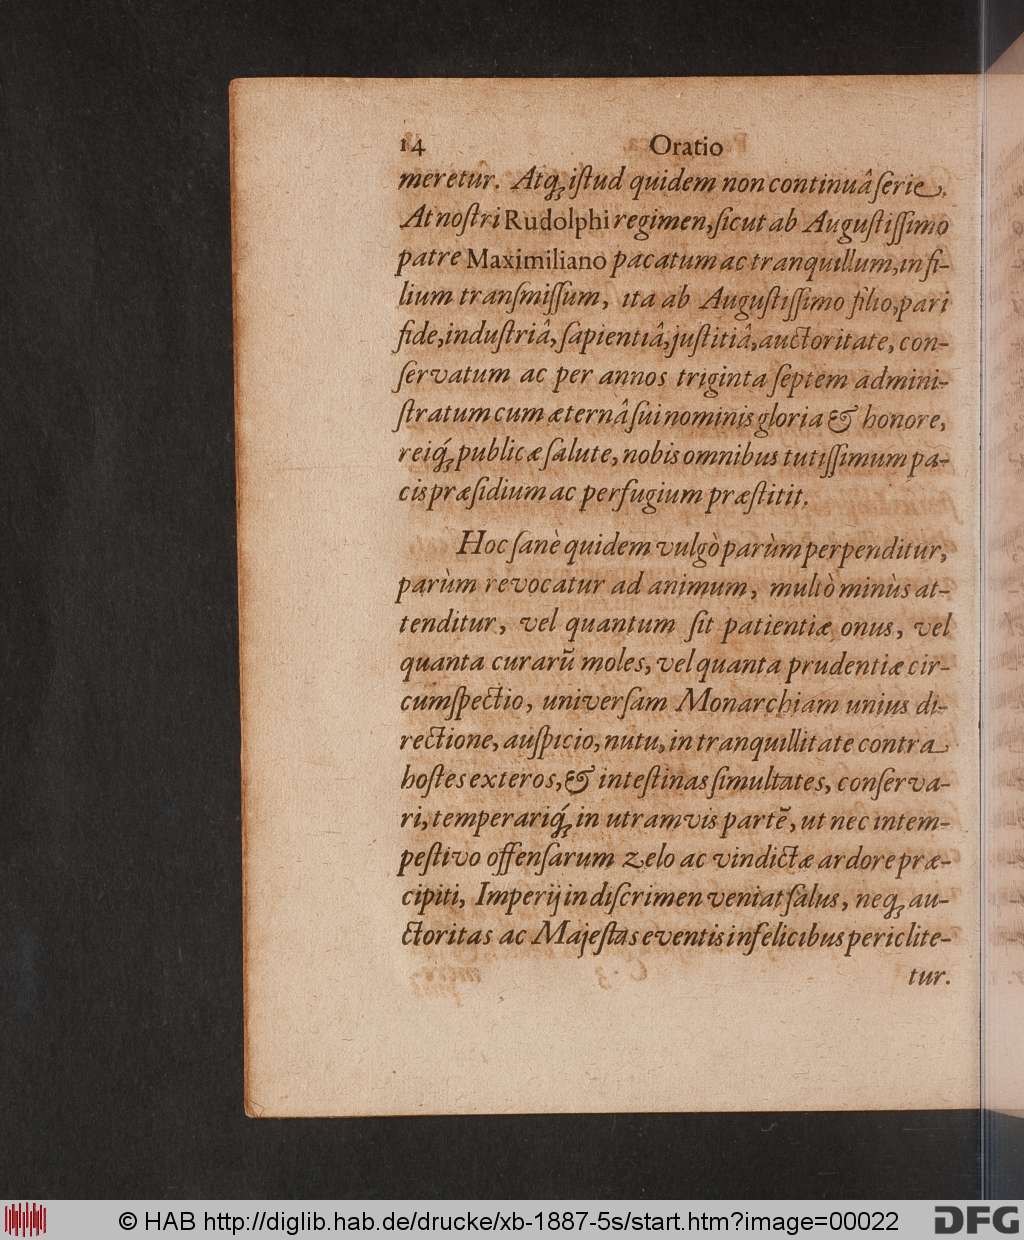 14 Oratio
meretur. Atq́; iſtud quidem non continuâ ſerie.
At noſtri Rudolphi regimen, ſicut ab Auguſtiſſimo
patre Maximiliano pacatum ac tranquillum, in fi-
lium tranſmiſſum, ita ab Auguſtiſſimo filio, pari
fide, induſtriâ, ſapientiâ, juſtitiâ, auctoritate, con-
ſervatum ac per annos triginta ſeptem admini-
ſtratum cum æternâ ſui nominis gloria & honore,
reiq́; publicæ ſalute, nobis omnibus tutiſſimum pa-
cis præſidium ac perfugium præſtitit.
Hoc ſanè quidem vulgò parùm perpenditur,
parùm revocatur ad animum, multò minùs at-
tenditur, vel quantum ſit patientiæ onus, vel
quanta curarũ moles, vel quanta prudentiæ cir-
cumſpectio, univerſam Monarchiam unius di-
rectione, auſpicio, nutu, in tranquillitate contra
hoſtes exteros, & inteſtinas ſimultates, conſerva-
ri, temperariq́; in utramvis partẽ, ut nec intem-
peſtivo offenſarum zelo ac vindictæ ardore præ-
cipiti, Imperij in diſcrimen veniat ſalus, neq; au-
ctoritas ac Majeſtas eventis infelicibus periclite-
tur.
© HAB http://diglib.hab.de/drucke/xb-1887-5s/start.htm?image=00022 DFG